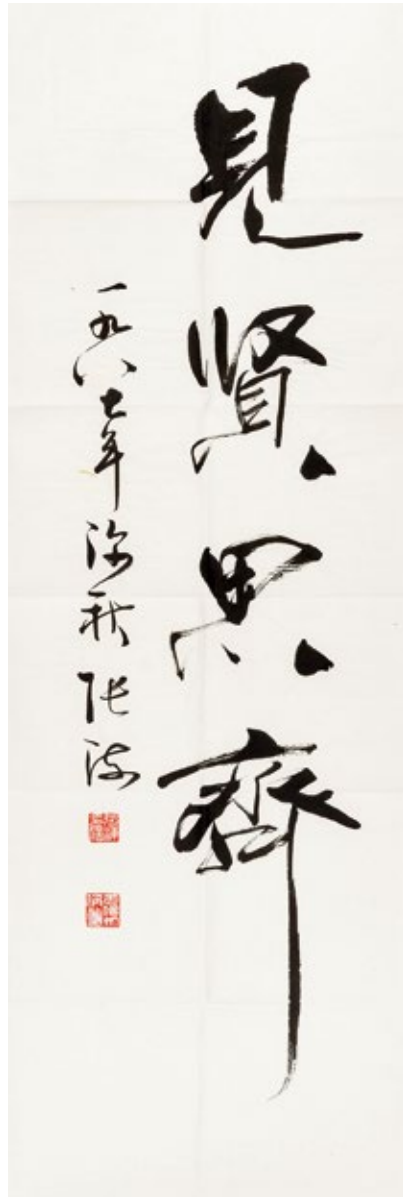 見賢思齊
一九八七年深秋張海